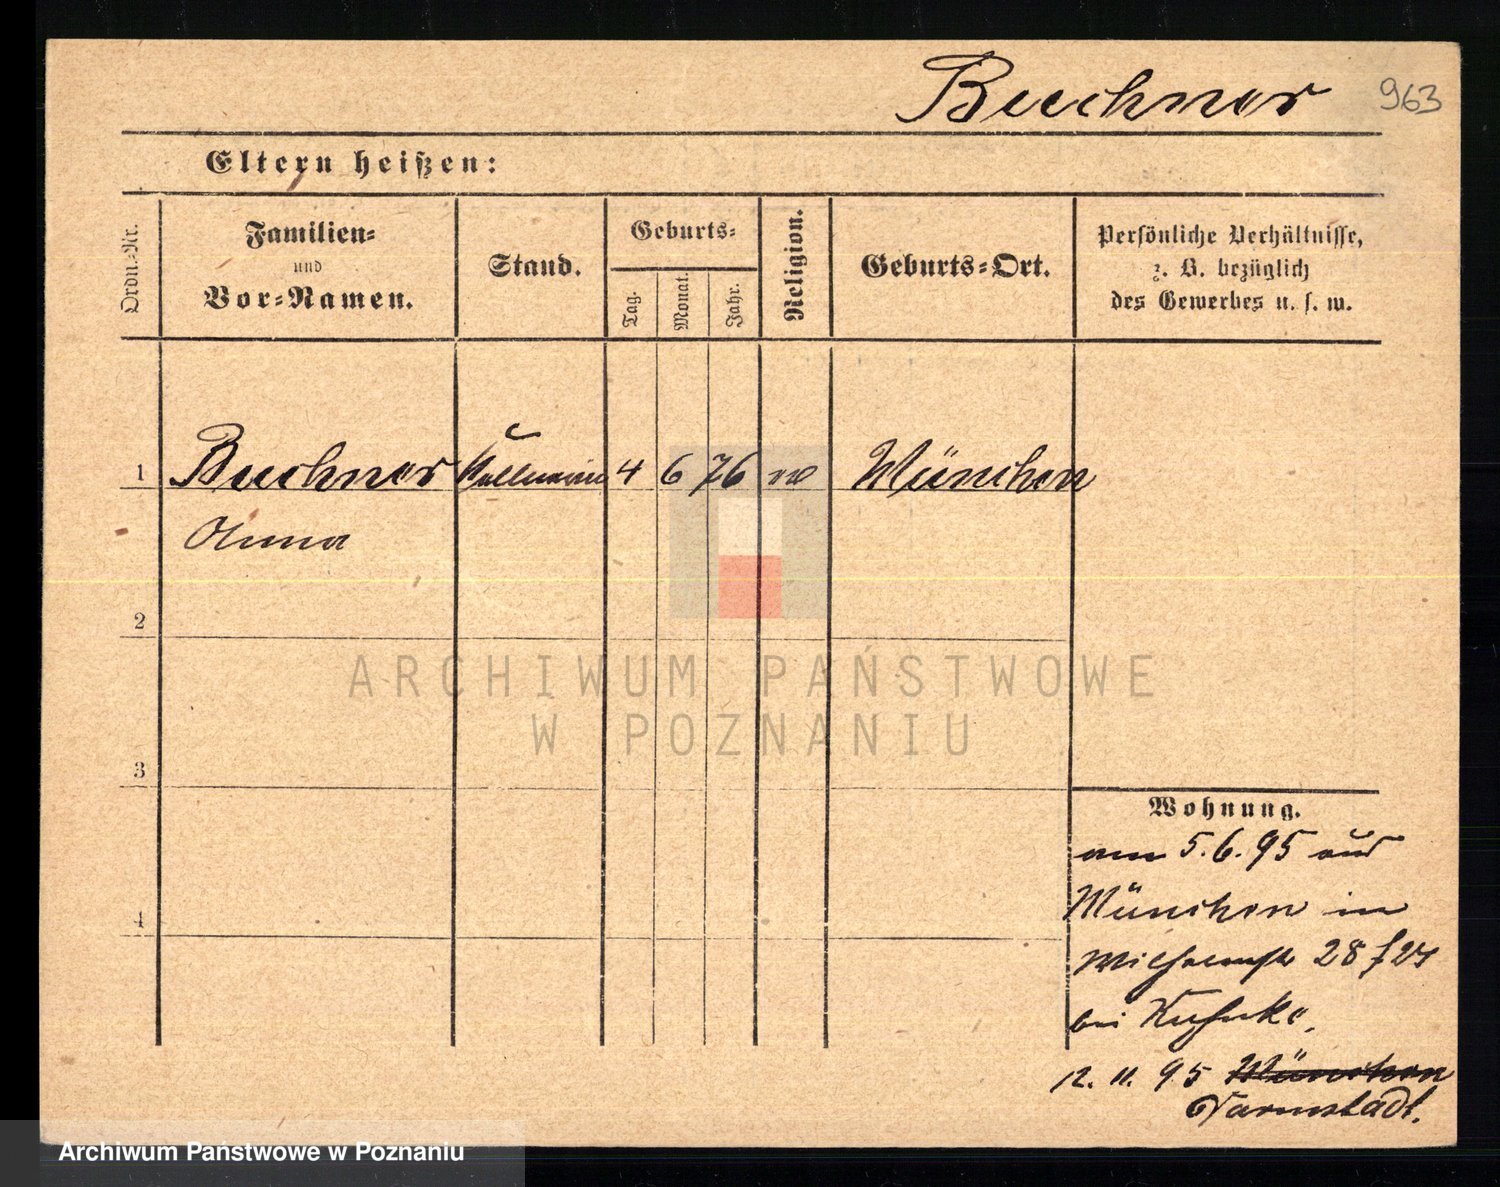 Buchner 963
Eltern heißen:
Ordn.-Nr.
Familien-
und
Vor-Namen.
Stand.
Geburts-
Tag.
Monat.
Jahr.
Religion.
Geburts-Ort.
Persönliche Verhältnisse,
z. B. bezüglich
des Gewerbes u. s. w.
1 Buchner Kellnerin 4 6 76 München
Anna
2
3
4
Wohnung.
am 5.6.95 aus
München in
Wilhelmstr 28
bei Kuhnke.
12. 11. 95 München
Darmstadt.
ARCHIWUM PAŃSTWOWE
W POZNANIU
Archiwum Państwowe w Poznaniu